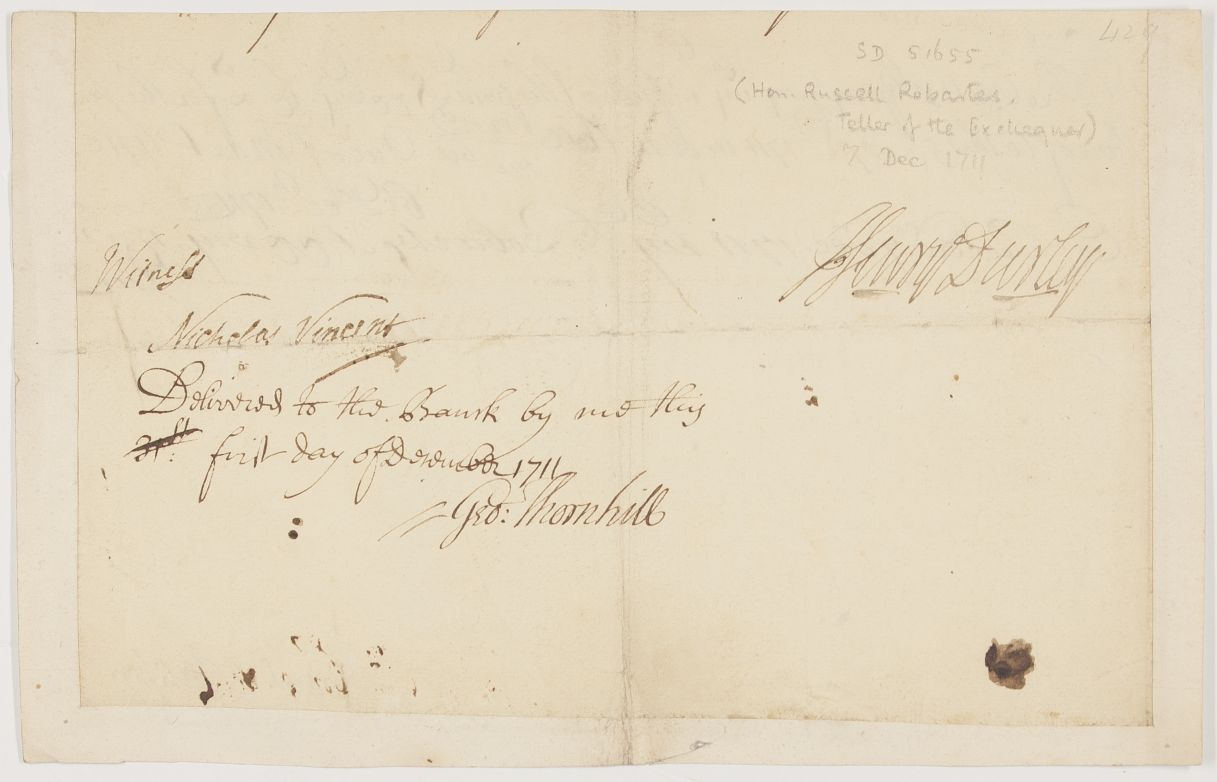 SD 51655
(Hon. Russell Robartes.
Teller of the Exchequer)
7 Dec 1711
Henry Durley
Witness
Nicholas Vincent
Delivered to the Banck by me this
31st: first day of Desember 1711
Geo: Thornhill